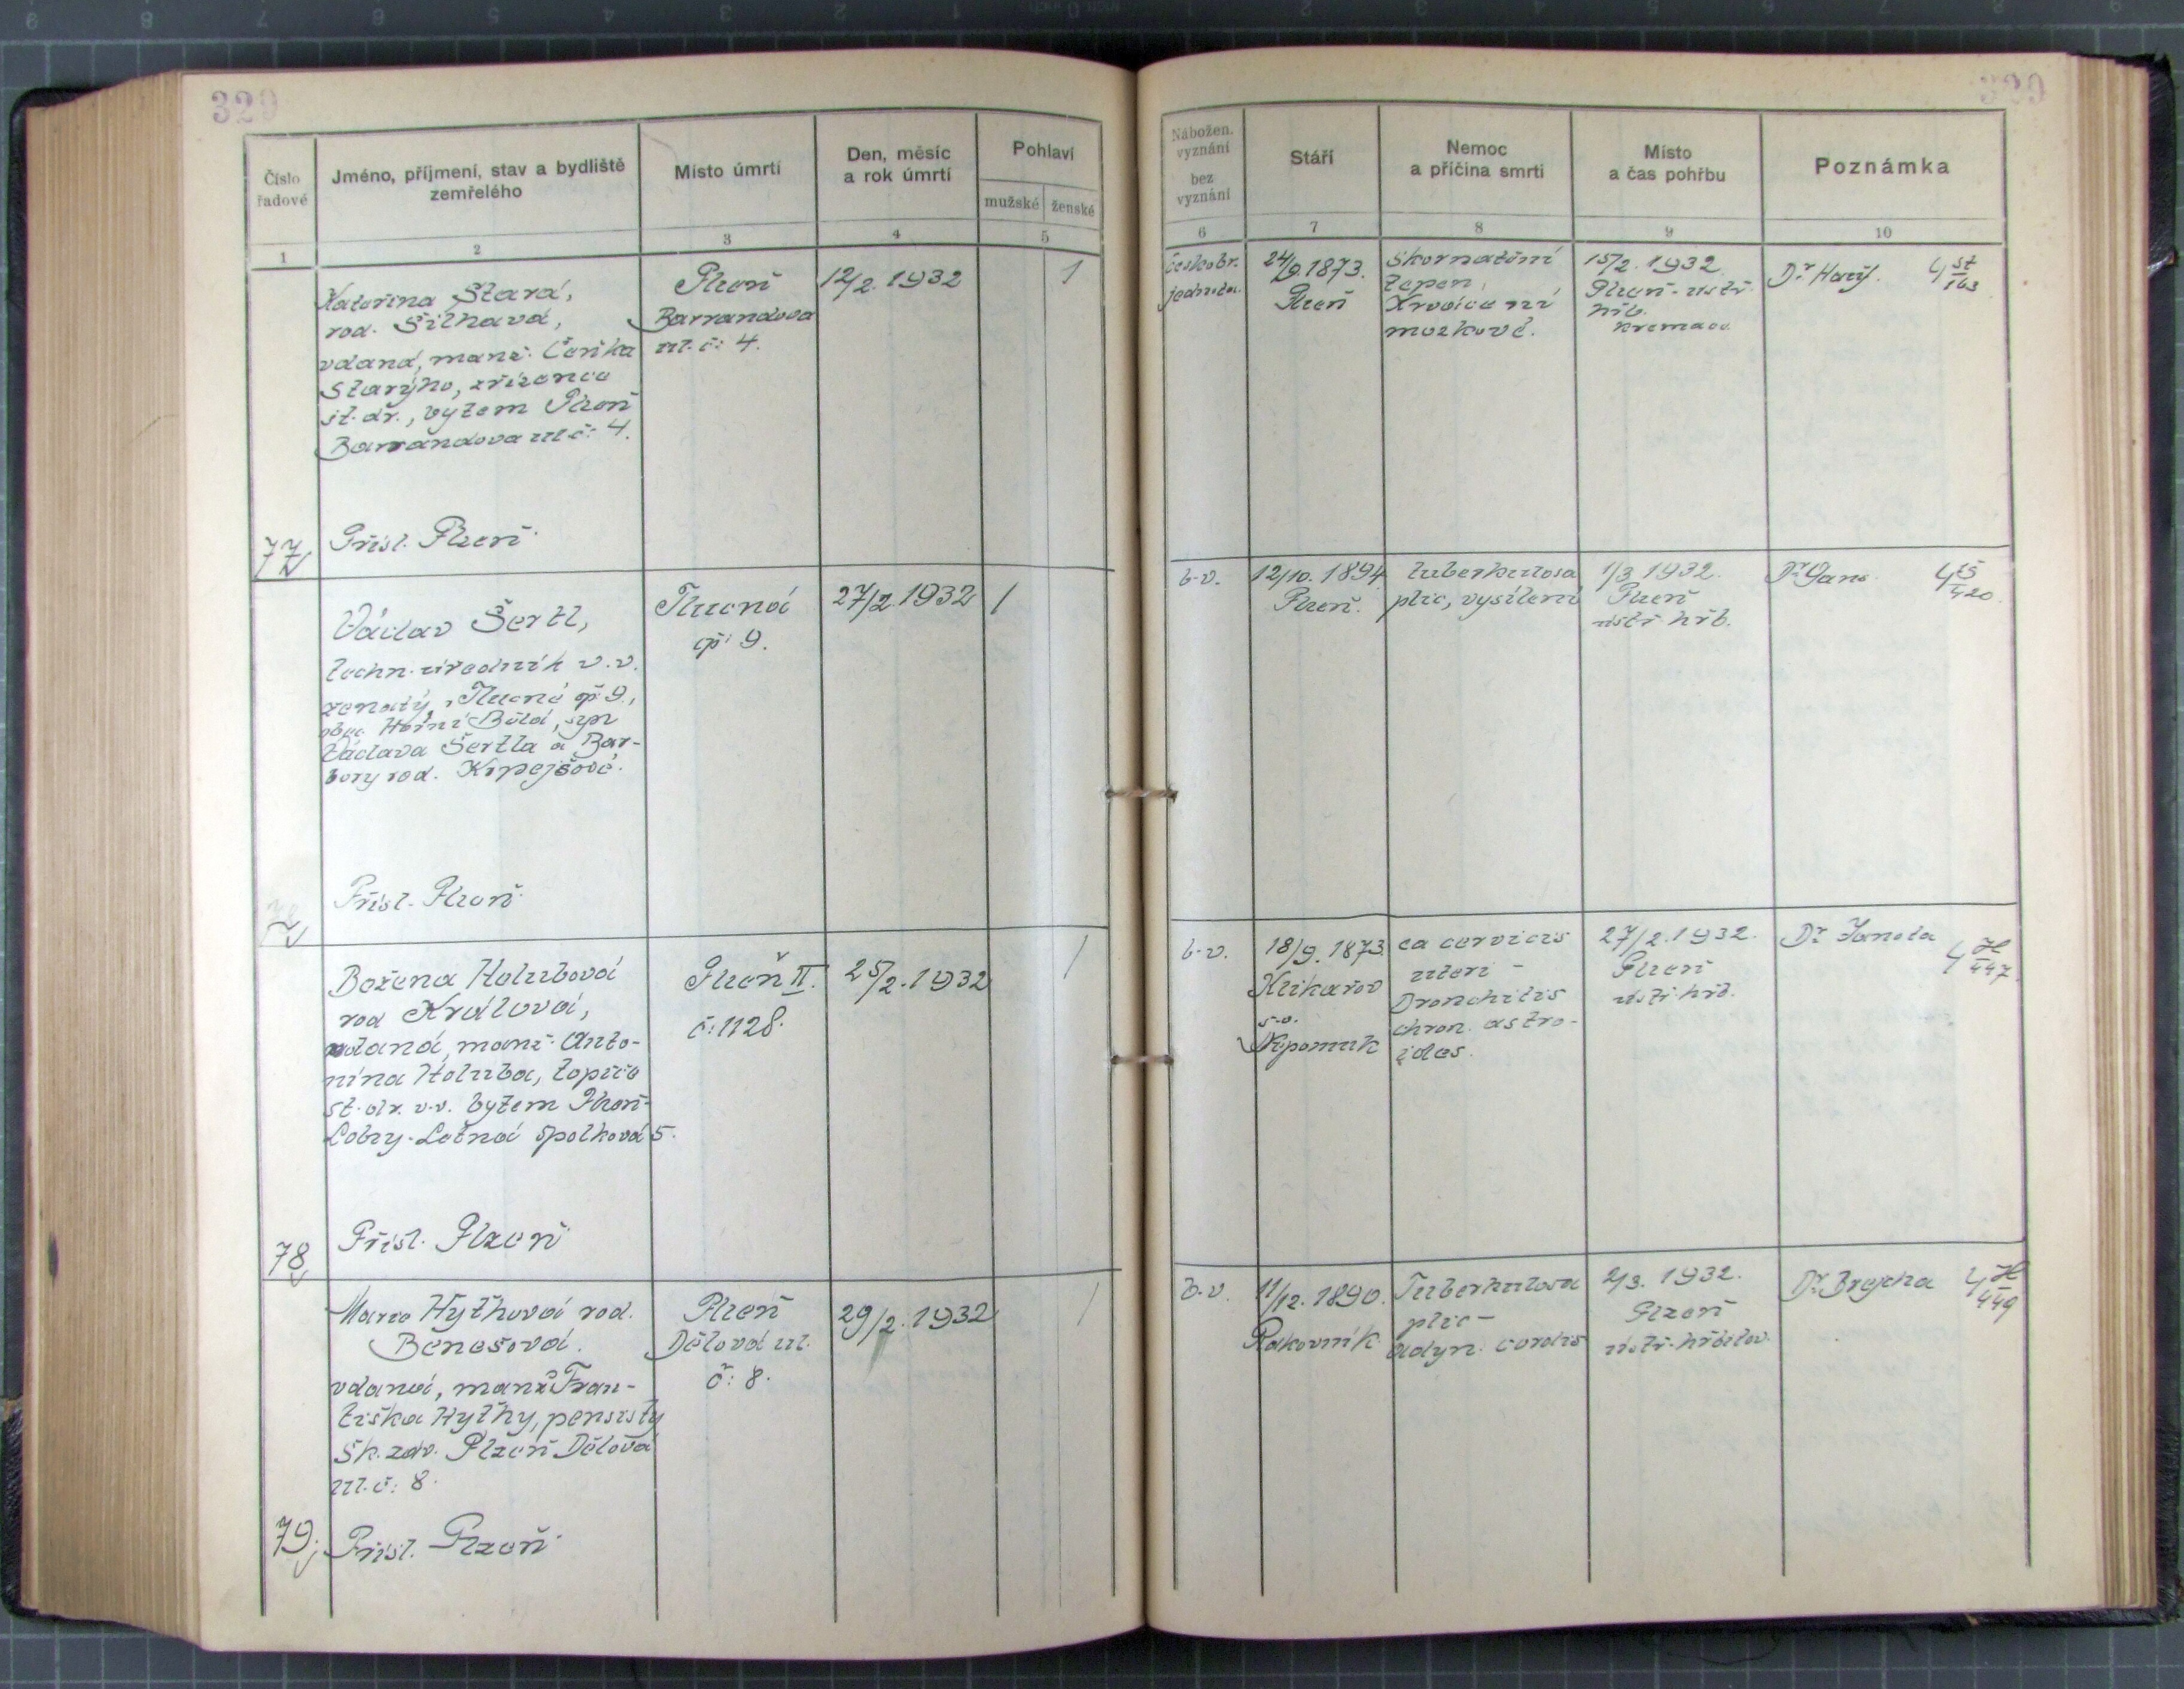 329
Číslo
řadové
Jméno, příjmení, stav a bydliště
zemřelého
Místo úmrtí
Den, měsíc
a rok úmrtí
Pohlaví
mužské ženské
1 2 3 4 5
Kateřina Stará,
rod. Šilhavá,
vdaná, manž. Čeňka
Starýho, zřízence
st. dr., bytem Plzeň
Barrandova ul. č: 4.
Přísl. Plzeň
77
Plzeň
Barrandova
ul. č: 4.
12/2. 1932
1
Václav Šertl,
techn. úředník v.v.
ženatý, Tlucná čp. 9.,
obec Horní Bělá, syn
Václava Šertla a Bar-
bory rod. Krpejšové.
Přísl. Plzeň
Tlucná
čp. 9.
27/2. 1932
1
Božena Holubová
rod Králová,
vdaná, manž. Anto-
nína Holuba, topiče
st. dr. v.v. bytem Plzeň-
Lobzy-Letná Spolková 5.
Přísl. Plzeň
78
Plzeň II.
č: 1128.
25/2. 1932
1
Marie Hyťhová rod.
Benešová.
vdaná, manž. Fran-
tiška Hyťhy, pensisty
Šk. záv. Plzeň Dělová
ul. č: 8.
Přísl. Plzeň
79
Plzeň
Dělová ul.
č: 8.
29/2. 1932
1
Nábožen.
vyznání
bez
vyznání
Stáří
Nemoc
a příčina smrti
Místo
a čas pohřbu
Poznámka
6 7 8 9 10
českobr.
jednota.
24/9. 1873.
Plzeň
Skornatění
tepen,
Krvácení
mozkové.
15/2. 1932
Plzeň - ústř.
hřb.
Dr
4 St/163
b.v.
12/10. 1894
Plzeň.
tuberkulosa
plic, vysílení
1/3 1932.
Plzeň
ústř. hřb.
Dr Gans
4 Š/420
b.v.
18/9. 1873
s.o.
Nepomuk
ca cervicis
uteri -
Bronchitis
chron.
27/2. 1932.
Plzeň
ústř. hřb.
Dr Janota
4 H/447
b.v.
11/12. 1890.
Rakovník
Tuberkulosa
plic -
adyn. cordis
2/3. 1932.
Plzeň
ústř. hřbitov.
Dr Brejcha
4 H/449